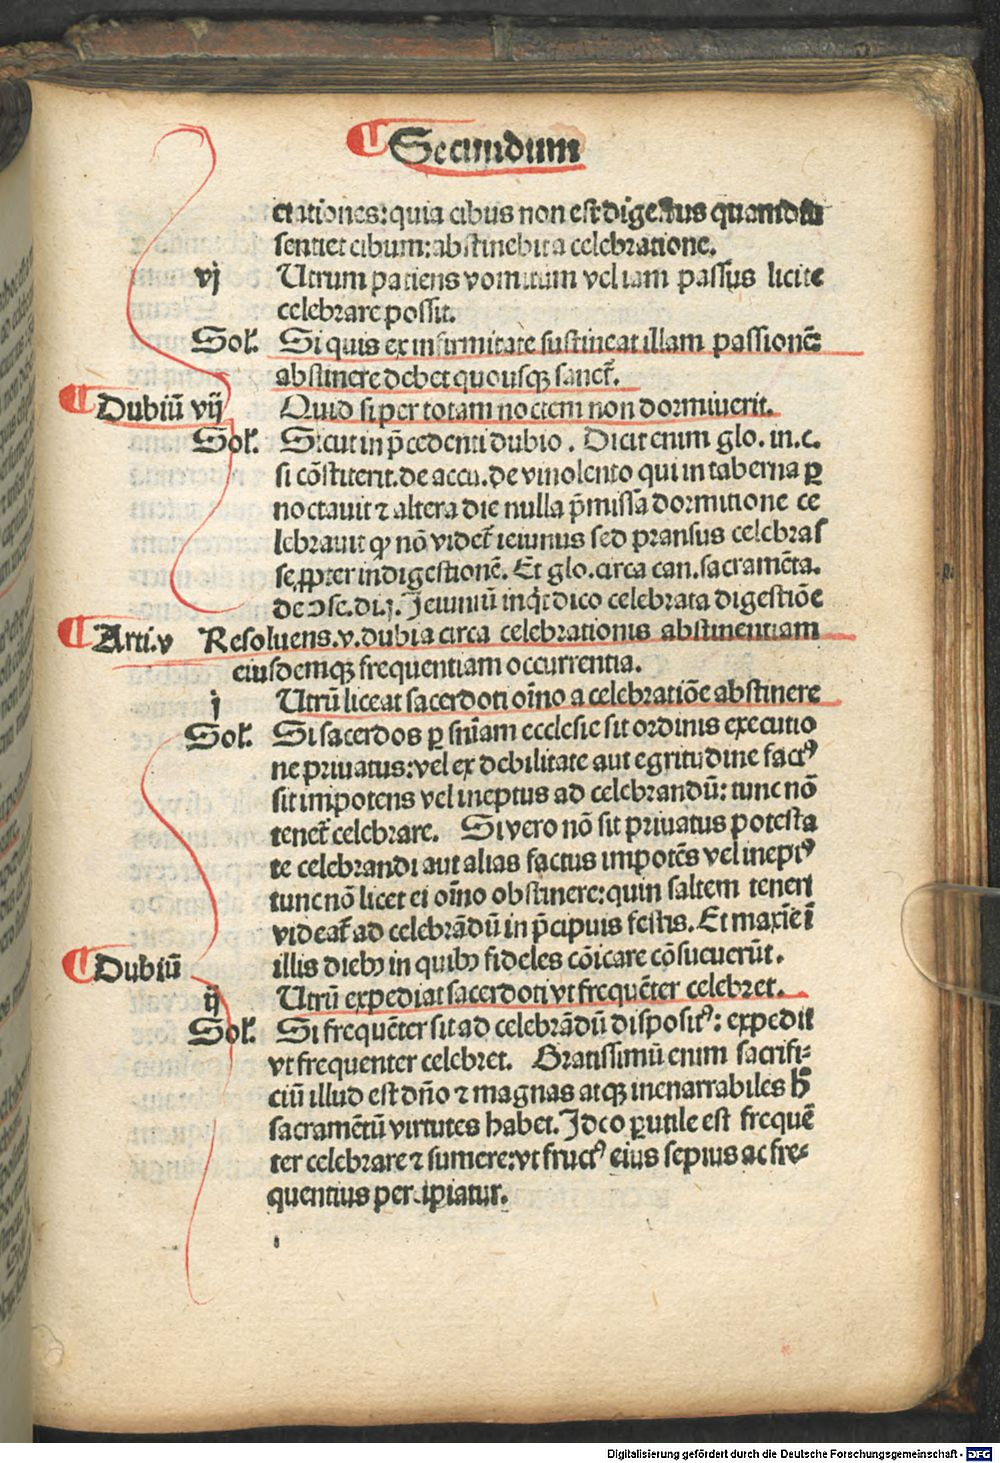 Secundum
ctationes: quia cibus non est digestus quamdiu
sentiet cibum: abstinebit a celebratione.
vj Utrum patiens vomitum vel iam passus licite
celebrare possit.
Sol'. Si quis ex infirmitate sustineat illam passionē
abstinere debet quousqꝫ sanet̄.
Dubiū vij Quid si per totam noctem non dormiuerit.
Sol'. Sicut in p̄cedenti dubio. Dicit enim glo. in. c.
si cōstiterit. de accu. de vinolento qui in taberna ꝑ
noctauit ⁊ altera die nulla p̄missa dormitione ce
lebrauit ꝙ nō videt̄ ieiunus sed pransus celebras
se ꝓpter indigestionē. Et glo. circa can. sacramēta.
de ↄsc. di. j. Ieiuniū inq̇t dico celebrata digestiōe
Arti. v Resoluens. v. dubia circa celebrationis abstinentiam
eiusdemqꝫ frequentiam occurrentia.
j Utrū liceat sacerdoti oīno a celebratiōe abstinere
Sol'. Si sacerdos ꝑ snīam ecclesie sit ordinis executio
ne priuatus: vel ex debilitate aut egritudine factꝰ
sit impotens vel ineptus ad celebrandū: tunc nō
tenet̄ celebrare. Si vero nō sit priuatus potesta
te celebrandi aut alias factus impotēs vel ineptꝰ
tunc nō licet ei oīno obstinere: quin saltem teneri
videat̄ ad celebrādū in p̄cipuis festis. Et maxīe ī
illis diebꝫ in quibꝫ fideles cōicare cōsucuerūt.
Dubiū
ij Utrū expediat sacerdoti vt frequēter celebret.
Sol'. Si frequēter sit ad celebrādū dispositꝰ: expedit
vt frequenter celebret. Gratissimū enim sacrifi⸗
ciū illud est dn̄o ⁊ magnas atqꝫ inenarrabiles h̄
sacramētū virtutes habet. Idco ꝑutile est frequē
ter celebrare ⁊ sumere: vt fructꝰ eius sepius ac fre⸗
quentius percipiatur.
Digitalisierung gefördert durch die Deutsche Forschungsgemeinschaft - DFG